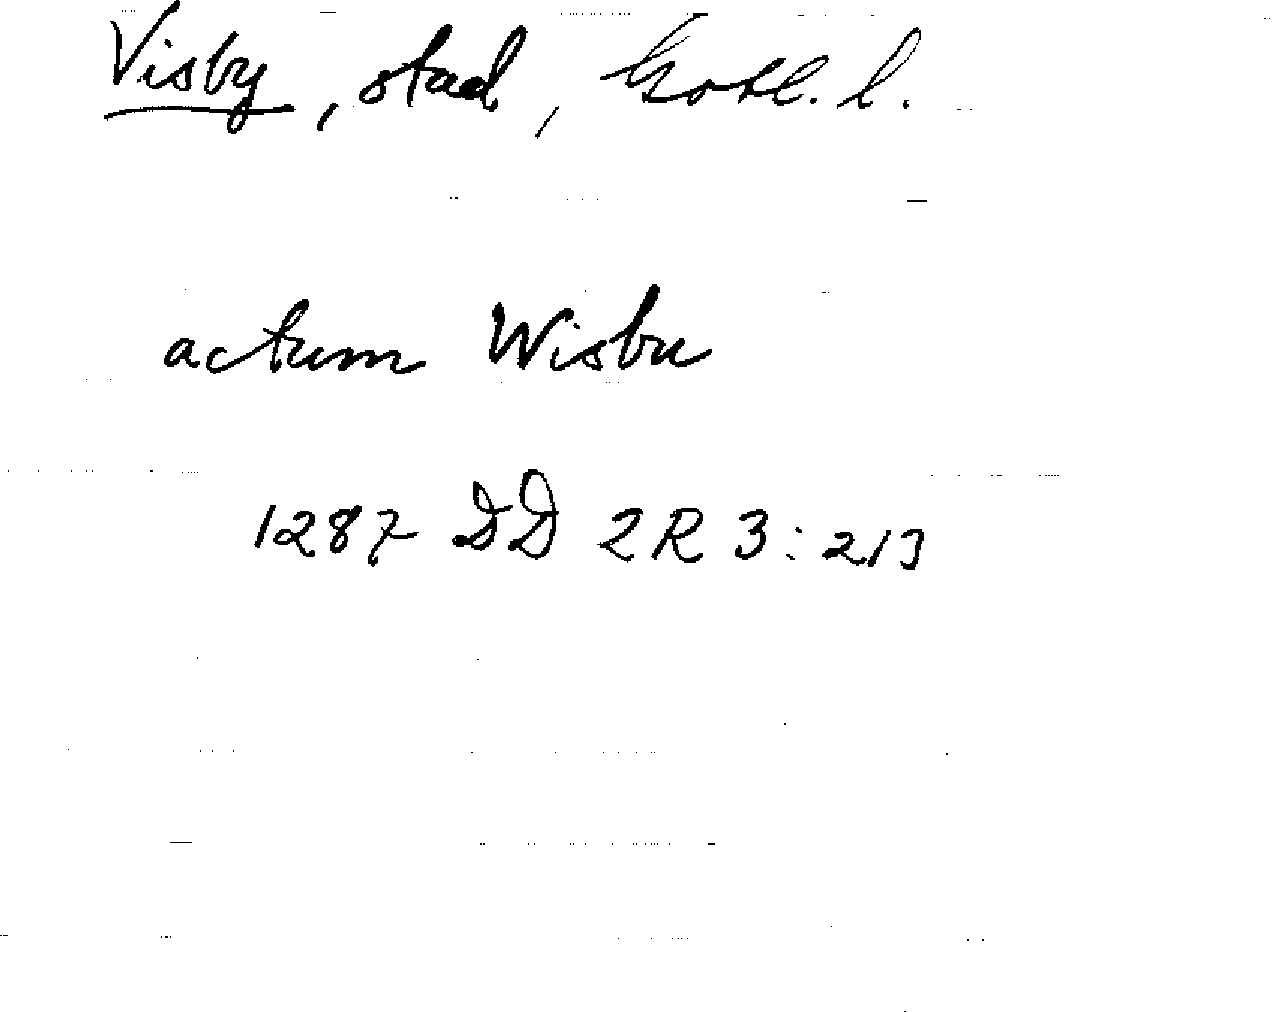 Visby, stad, Gotl. l.
actum Wisbu
1287 DD 2R 3:213